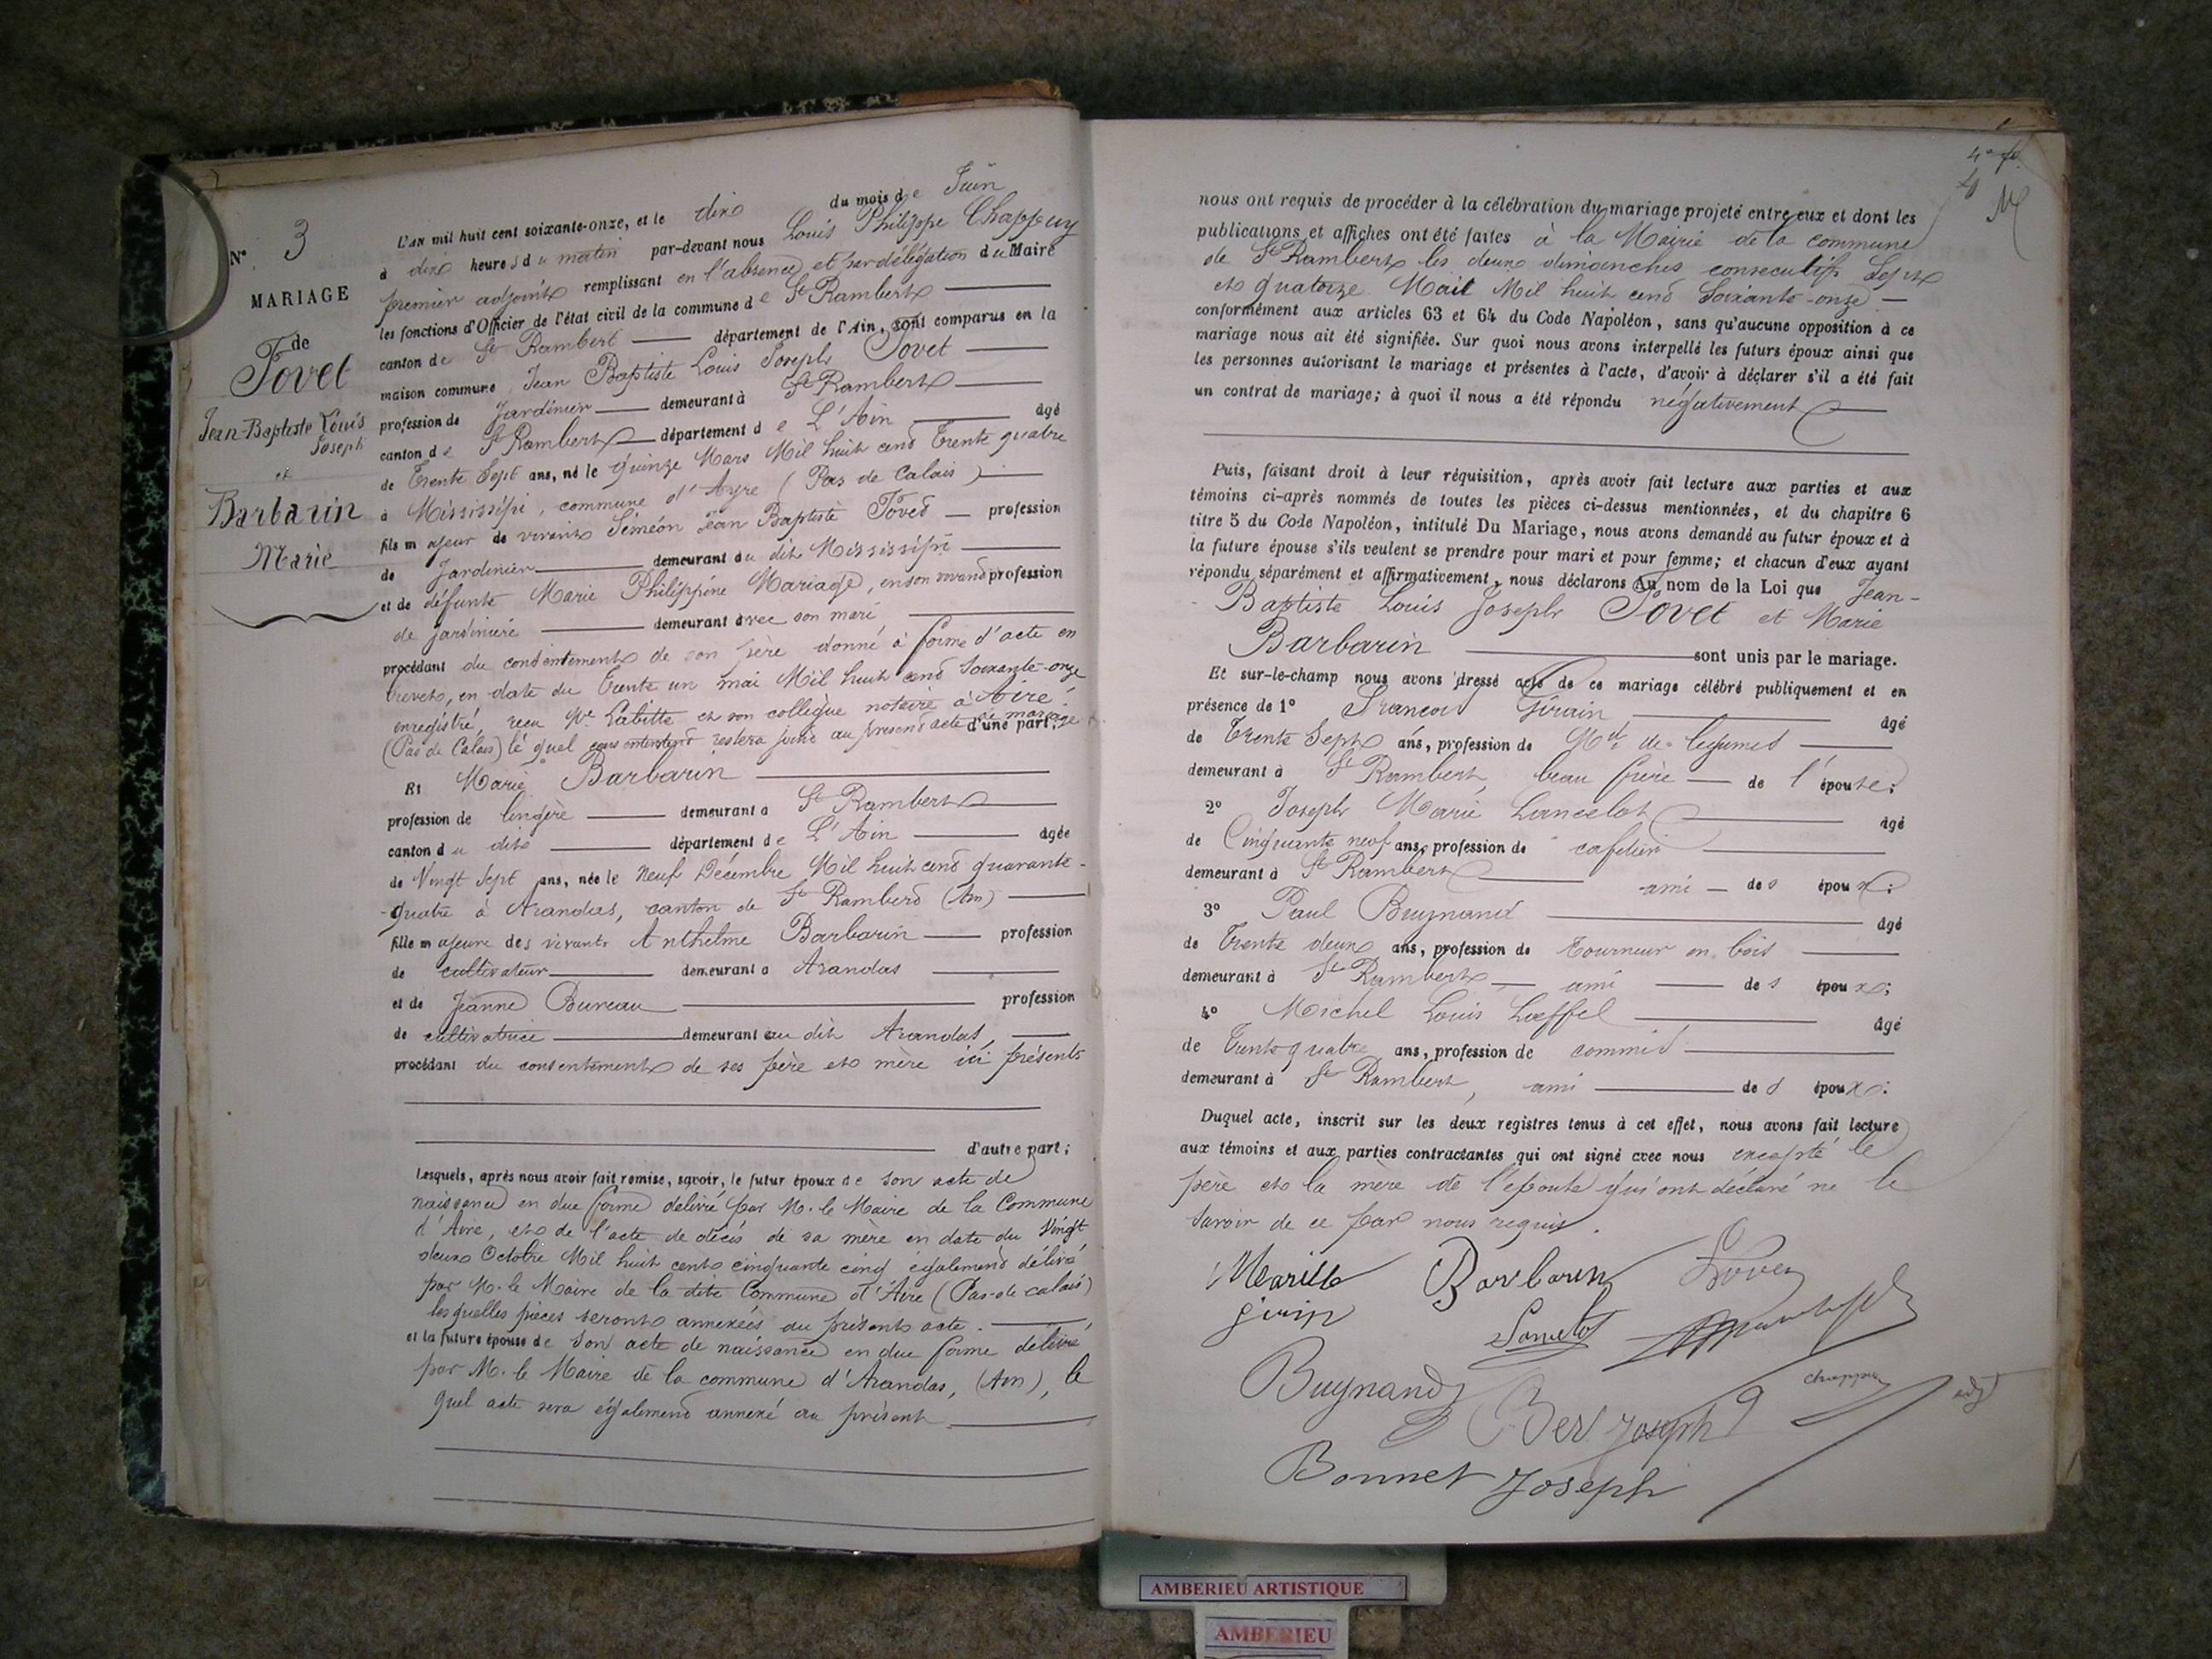 N° 3
MARIAGE
de
Fovet
Jean-Baptiste Louis
Joseph
et
Barbarin
Marie
L'an mil huit cent soixante-onze, et le dix du mois de Juin
à dix heures du matin par-devant nous Louis Philippe Chappuy
premier adjoint remplissant en l'absence et par délégation du Maire
les fonctions d'Officier de l'état civil de la commune de St Rambert
canton de St Rambert département de l'Ain, sont comparus en la
maison commune, Jean Baptiste Louis Joseph Fovet
profession de Jardinier demeurant à St Rambert
canton de St Rambert département de L'Ain âgé
de Trente Sept ans, né le quinze Mars Mil huit cent Trente quatre
à Mississipi, commune d'Ayre (Pas de Calais)
fils majeur de vivant Siméon Jean Baptiste Fovet profession
de Jardinier demeurant au dit Mississipi
et de défunte Marie Philippine Mariage, en son vivant profession
de jardinière demeurant avec son mari,
procédant du consentement de son père donné à forme d'acte en
brevet, en date du Trente un mai Mil huit cent Soixante-onze
enregistré, reçu Me Labitte et son collègue notaire à Aire
(Pas de Calais) le quel restera joint au présent acte de mariage d'une part;
Et Marie Barbarin
profession de lingère demeurant à St Rambert
canton du dit département de L'Ain âgée
de Vingt Sept ans, née le Neuf Décembre Mil huit cent quarante-
quatre à Arandas, canton de St Rambert (Ain)
fille majeure des vivants Anthelme Barbarin profession
de cultivateur demeurant à Arandas
et de Jeanne Bureau profession
de cultivatrice demeurant au dit Arandas,
procédant du consentement de ses père et mère ici présents
d'autre part;
Lesquels, après nous avoir fait remise, savoir, le futur époux de son acte de
naissance en due forme délivré par M. le Maire de la Commune
d'Aire, et de l'acte de décès de sa mère en date du Vingt
deux Octobre Mil huit cent cinquante cinq également délivré
par M. le Maire de la dite Commune d'Aire (Pas-de calais)
lesquelles pièces seront annexées au présent acte.
et la future épouse de son acte de naissance en due forme délivré
par M. le Maire de la commune d'Arandas, (Ain), le
quel acte sera également annexé au présent
nous ont requis de procéder à la célébration du mariage projeté entre eux et dont les
publications et affiches ont été faites à la Mairie de la commune
de St Rambert les deux dimanches consecutifs Sept
et quatorze Mai Mil huit cent Soixante-onze
conformément aux articles 63 et 64 du Code Napoléon, sans qu'aucune opposition à ce
mariage nous ait été signifiée. Sur quoi nous avons interpellé les futurs époux ainsi que
les personnes autorisant le mariage et présentes à l'acte, d'avoir à déclarer s'il a été fait
un contrat de mariage; à quoi il nous a été répondu négativement
Puis, faisant droit à leur réquisition, après avoir fait lecture aux parties et aux
témoins ci-après nommés de toutes les pièces ci-dessus mentionnées, et du chapitre 6
titre 5 du Code Napoléon, intitulé Du Mariage, nous avons demandé au futur époux et à
la future épouse s'ils veulent se prendre pour mari et pour femme; et chacun d'eux ayant
répondu séparément et affirmativement, nous déclarons Au nom de la Loi que Jean-
Baptiste Louis Joseph Fovet et Marie
Barbarin sont unis par le mariage.
Et sur-le-champ nous avons dressé acte de ce mariage célébré publiquement et en
présence de 1° Francois Girin âgé
de Trente Sept ans, profession de Md de légumes
demeurant à St Rambert, beau frère de l'épouse;
2° Joseph Marie Lancelot âgé
de Cinquante neuf ans, profession de cafetier
demeurant à St Rambert ami des époux;
3° Paul Buynand âgé
de Trente deux ans, profession de tourneur en bois
demeurant à St Rambert ami des époux;
4° Michel Louis Loeffel âgé
de Trente quatre ans, profession de commis
demeurant à St Rambert, ami des époux:
Duquel acte, inscrit sur les deux registres tenus à cet effet, nous avons fait lecture
aux témoins et aux parties contractantes qui ont signé avec nous excepté le
père et la mère de l'épouse qui ont déclaré ne le
savoir de ce par nous requis.
Marie Barbarin Fovet
girin
Lancelot
Buynand
chappuy adjt
Ber Joseph
Bonnet Joseph
AMBERIEU ARTISTIQUE
AMBERIEU